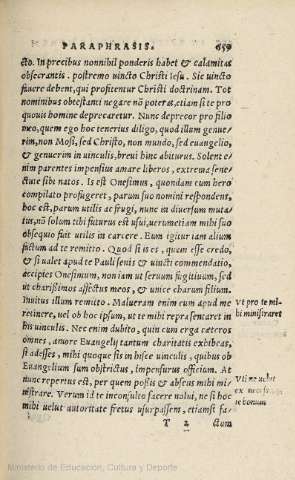 PARAPHRASIS. 659
cto. In precibus nonnihil ponderis habet & calamitas
obsecrantis. postremo uincto Christi Iesu. Sic uincto
fauere debent, qui profitentur Christi doctrinam. Tot
nominibus obtestanti negare nō poteras, etiam si te pro
quouis homine deprecaretur. Nunc deprecor pro filio
meo, quem eo hoc tenerius diligo, quod illum genue/
rim, non Mosi, sed Christo, non mundo, sed euangelio,
& genuerim in uinculis, breui hinc abiturus. Solent e/
nim parentes impensius amare liberos, extrema sene/
ctute sibi natos. Is est Onesimus, quondam cum hero
compilato profugeret, parum suo nomini respondens,
hoc est, parum utilis ac frugi, nunc in diuersum muta/
tus, nō solum tibi futurus est usui, uerumetiam mihi suo
obsequio fuit utilis in carcere. Eum igitur iam alium
factum ad te remitto. Quod si is es, quem esse credo,
& si ualet apud te Pauli senis & uincti commendatio,
accipies Onesimum, non iam ut seruum fugitiuum, sed
ut charissimos affectus meos, & unice charum filium.
Inuitus illum remitto. Malueram enim eum apud me
retinere, uel ob hoc ipsum, ut te mihi repraesentaret in
his uinculis. Nec enim dubito, quin cum erga caeteros
omnes, amore Euangelij tantum charitatis exhibeas,
si adesses, mihi quoque sis in hisce uinculis, quibus ob
Euangelium sum obstrictus, impensurus officium. At
nunc repertus est, per quem possis & absens mihi mi/
nistrare. Verum id te inconsulto facere nolui, ne si hoc
mihi uelut autoritate fretus usurpassem, etiamsi fa/
T 2 ctum
Vt pro te mi-
hi ministraret
Vti ne uelut
ex
te bonum
Ministerio de Educación, Cultura y Deporte